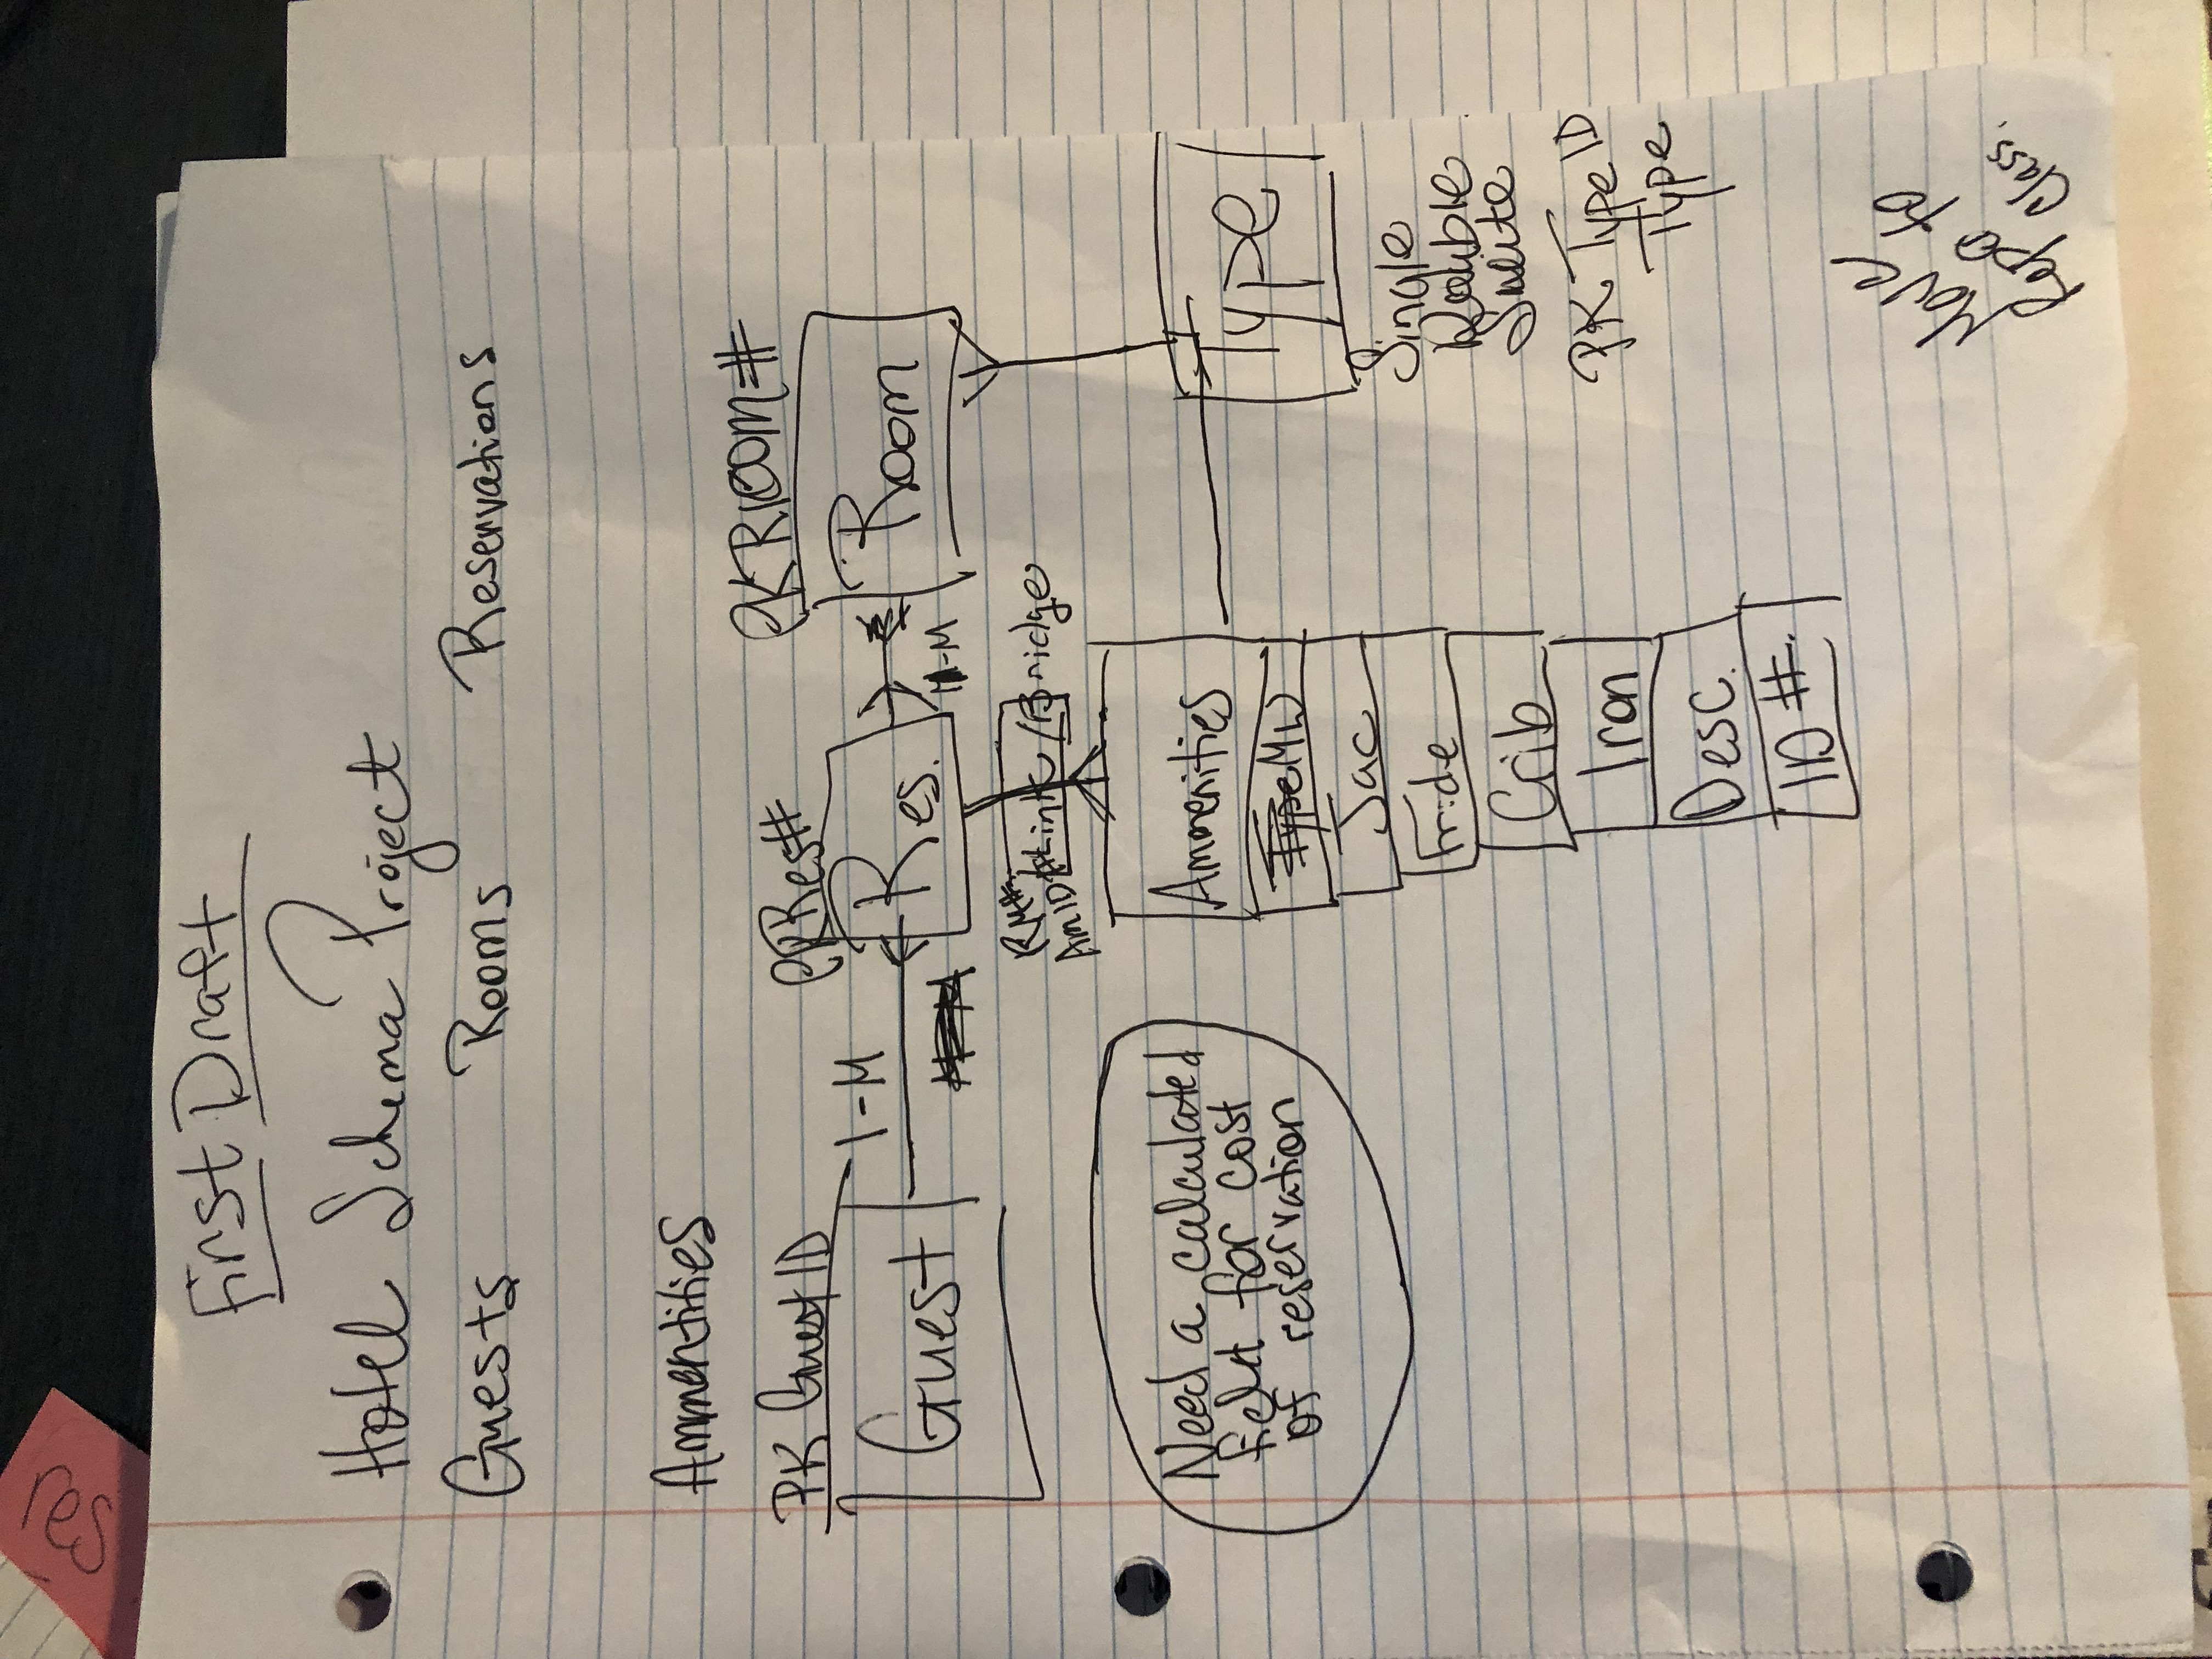 res
First Draft
Hotel Schema Project
Guests Rooms Reservations
Ammentities
PK Guest ID
PK Res#
PK Room #
Guest
1-M
Res.
M-M
Room
RM#
AmID#
Link/Bridge
Need a calculated
field for cost
of reservation
Ammenities
Type
MW
Jac
Fride
Crib
Iron
Desc.
ID #.
Type
Single
Double
Suite
PK Type ID
Type
Move
Repo to
Class.